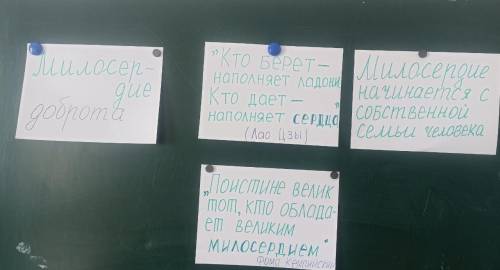 Милосер-
дие
доброта
„Кто берет –
наполняет ладони
Кто дает –
наполняет сердце"
(Лао Цзы)
Милосердие
начинается с
собственной
семьи человека
„Поистине велик
тот, кто облада-
ет великим
милосердием"
Фома Кемпийский